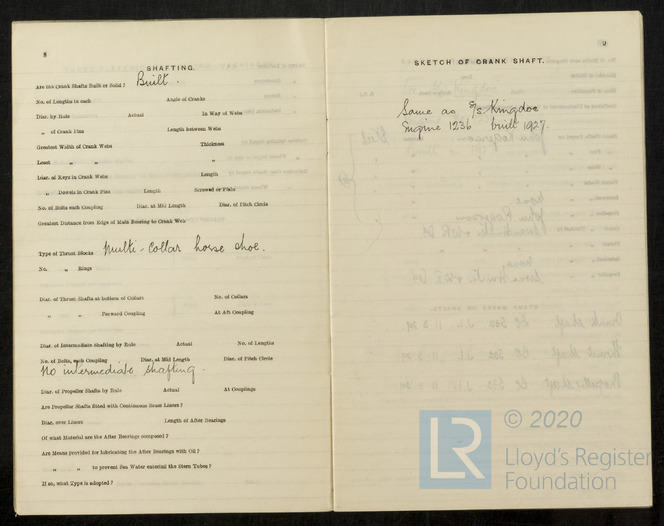 8
SHAFTING.
Are the Crank Shafts Built or Solid? Built.
No. of Lengths in each Angle of Cranks
Diar. by Rule Actual In Way of Webs
„ of Crank Pins Length between Webs
Greatest Width of Crank Webs Thickness
Least „ „ „
Diar. of Keys in Crank Webs Length
„ Dowels in Crank Pins Length Screwed or Plain
No. of Bolts each Coupling Diar. at Mid Length Diar. of Pitch Circle
Greatest Distance from Edge of Main Bearing to Crank Web
Type of Thrust Blocks Multi-Collar horse shoe.
No. „ Rings
Diar. of Thrust Shafts at bottom of Collars No. of Collars
„ „ Forward Coupling At Aft Coupling
Diar. of Intermediate Shafting by Rule Actual No. of Lengths
No. of Bolts, each Coupling Diar. at Mid Length Diar. of Pitch Circle
No intermediate shafting.
Diar. of Propeller Shafts by Rule Actual At Couplings
Are Propeller Shafts fitted with Continuous Brass Liners?
Diar. over Liners Length of After Bearings
Of what Material are the After Bearings composed?
Are Means provided for lubricating the After Bearings with Oil?
„ „ to prevent Sea Water entering the Stern Tubes?
If so, what Type is adopted?
9
SKETCH OF CRANK SHAFT.
Same as S/S Kingdoe
Engine 1236 built 1927.
LR
© 2020
Lloyd's Register
Foundation